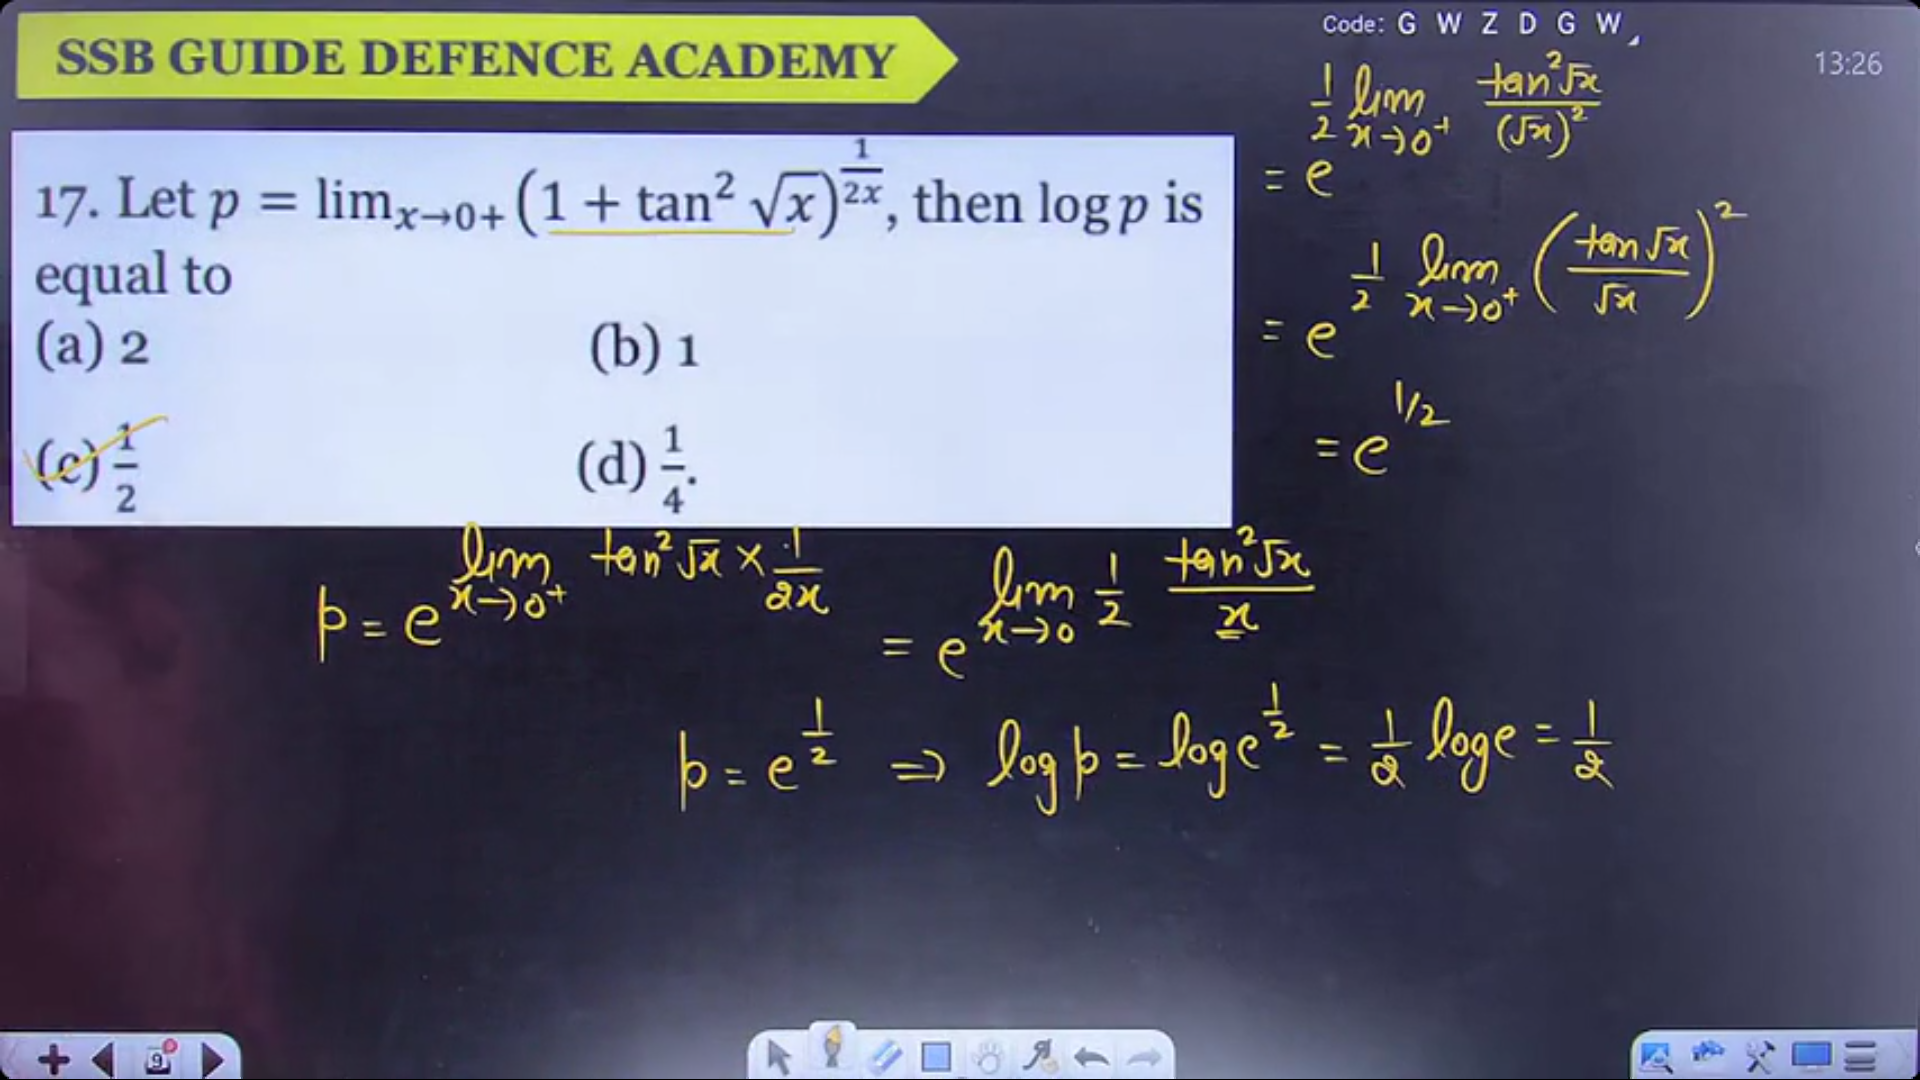 SSB GUIDE DEFENCE ACADEMY
Code: G W Z D G W
13:26
17. Let p = lim x→0+ (1 + tan² √x)^(1/2x), then log p is
equal to
(a) 2 (b) 1
(c) 1/2 (d) 1/4.
p = e^(lim x→0⁺ tan²√x × 1/2x) = e^(lim x→0 1/2 tan²√x/x)
= e^(1/2 lim x→0⁺ tan²√x/(√x)²)
= e^(1/2 lim x→0⁺ (tan√x/√x)²)
= e^(1/2)
p = e^(1/2) ⇒ log p = log e^(1/2) = 1/2 log e = 1/2
9